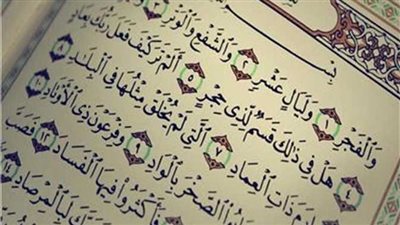 بِسْمِ
وَٱلْفَجْرِ ١ وَلَيَالٍ عَشْرٍ ٢ وَٱلشَّفْعِ وَٱلْوَتْرِ ٣
٤ هَلْ فِى ذَٰلِكَ قَسَمٌ لِّذِى حِجْرٍ ٥ أَلَمْ تَرَ كَيْفَ فَعَلَ رَبُّكَ بِعَادٍ
ذَاتِ ٱلْعِمَادِ ٧ ٱلَّتِى لَمْ يُخْلَقْ مِثْلُهَا فِى ٱلْبِلَٰدِ ٨
ٱلصَّخْرَ بِٱلْوَادِ ٩ وَفِرْعَوْنَ ذِى ٱلْأَوْتَادِ ١٠
فَأَكْثَرُوا۟ فِيهَا ٱلْفَسَادَ ١٢ فَصَبَّ
رَبَّكَ لَبِٱلْمِرْصَادِ ١٤